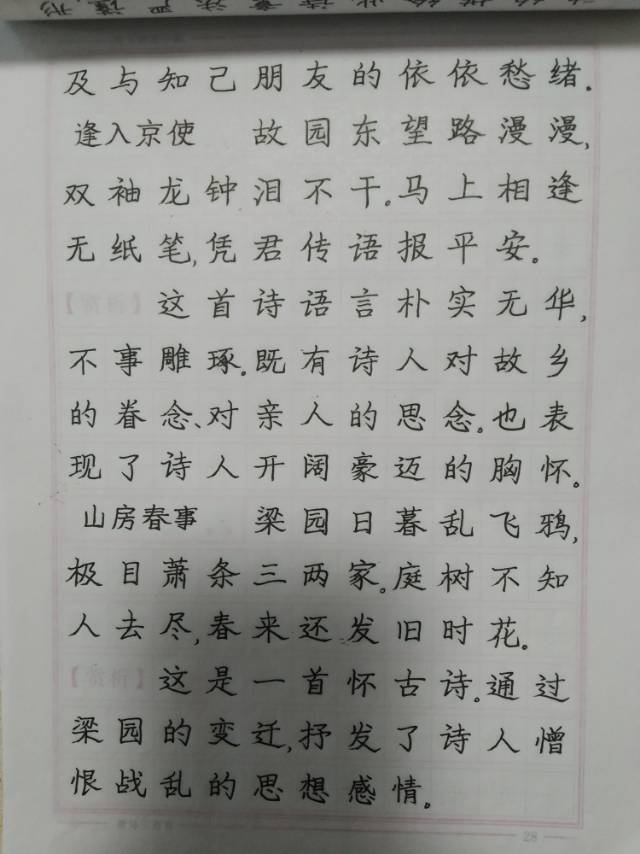 及与知己朋友的依依愁绪。
逢入京使 故园东望路漫漫,
双袖龙钟泪不干。马上相逢
无纸笔,凭君传语报平安。
【赏析】这首诗语言朴实无华,
不事雕琢。既有诗人对故乡
的眷念、对亲人的思念。也表
现了诗人开阔豪迈的胸怀。
山房春事 梁园日暮乱飞鸦,
极目萧条三两家。庭树不知
人去尽,春来还发旧时花。
【赏析】这是一首怀古诗。通过
梁园的变迁,抒发了诗人憎
恨战乱的思想感情。
28